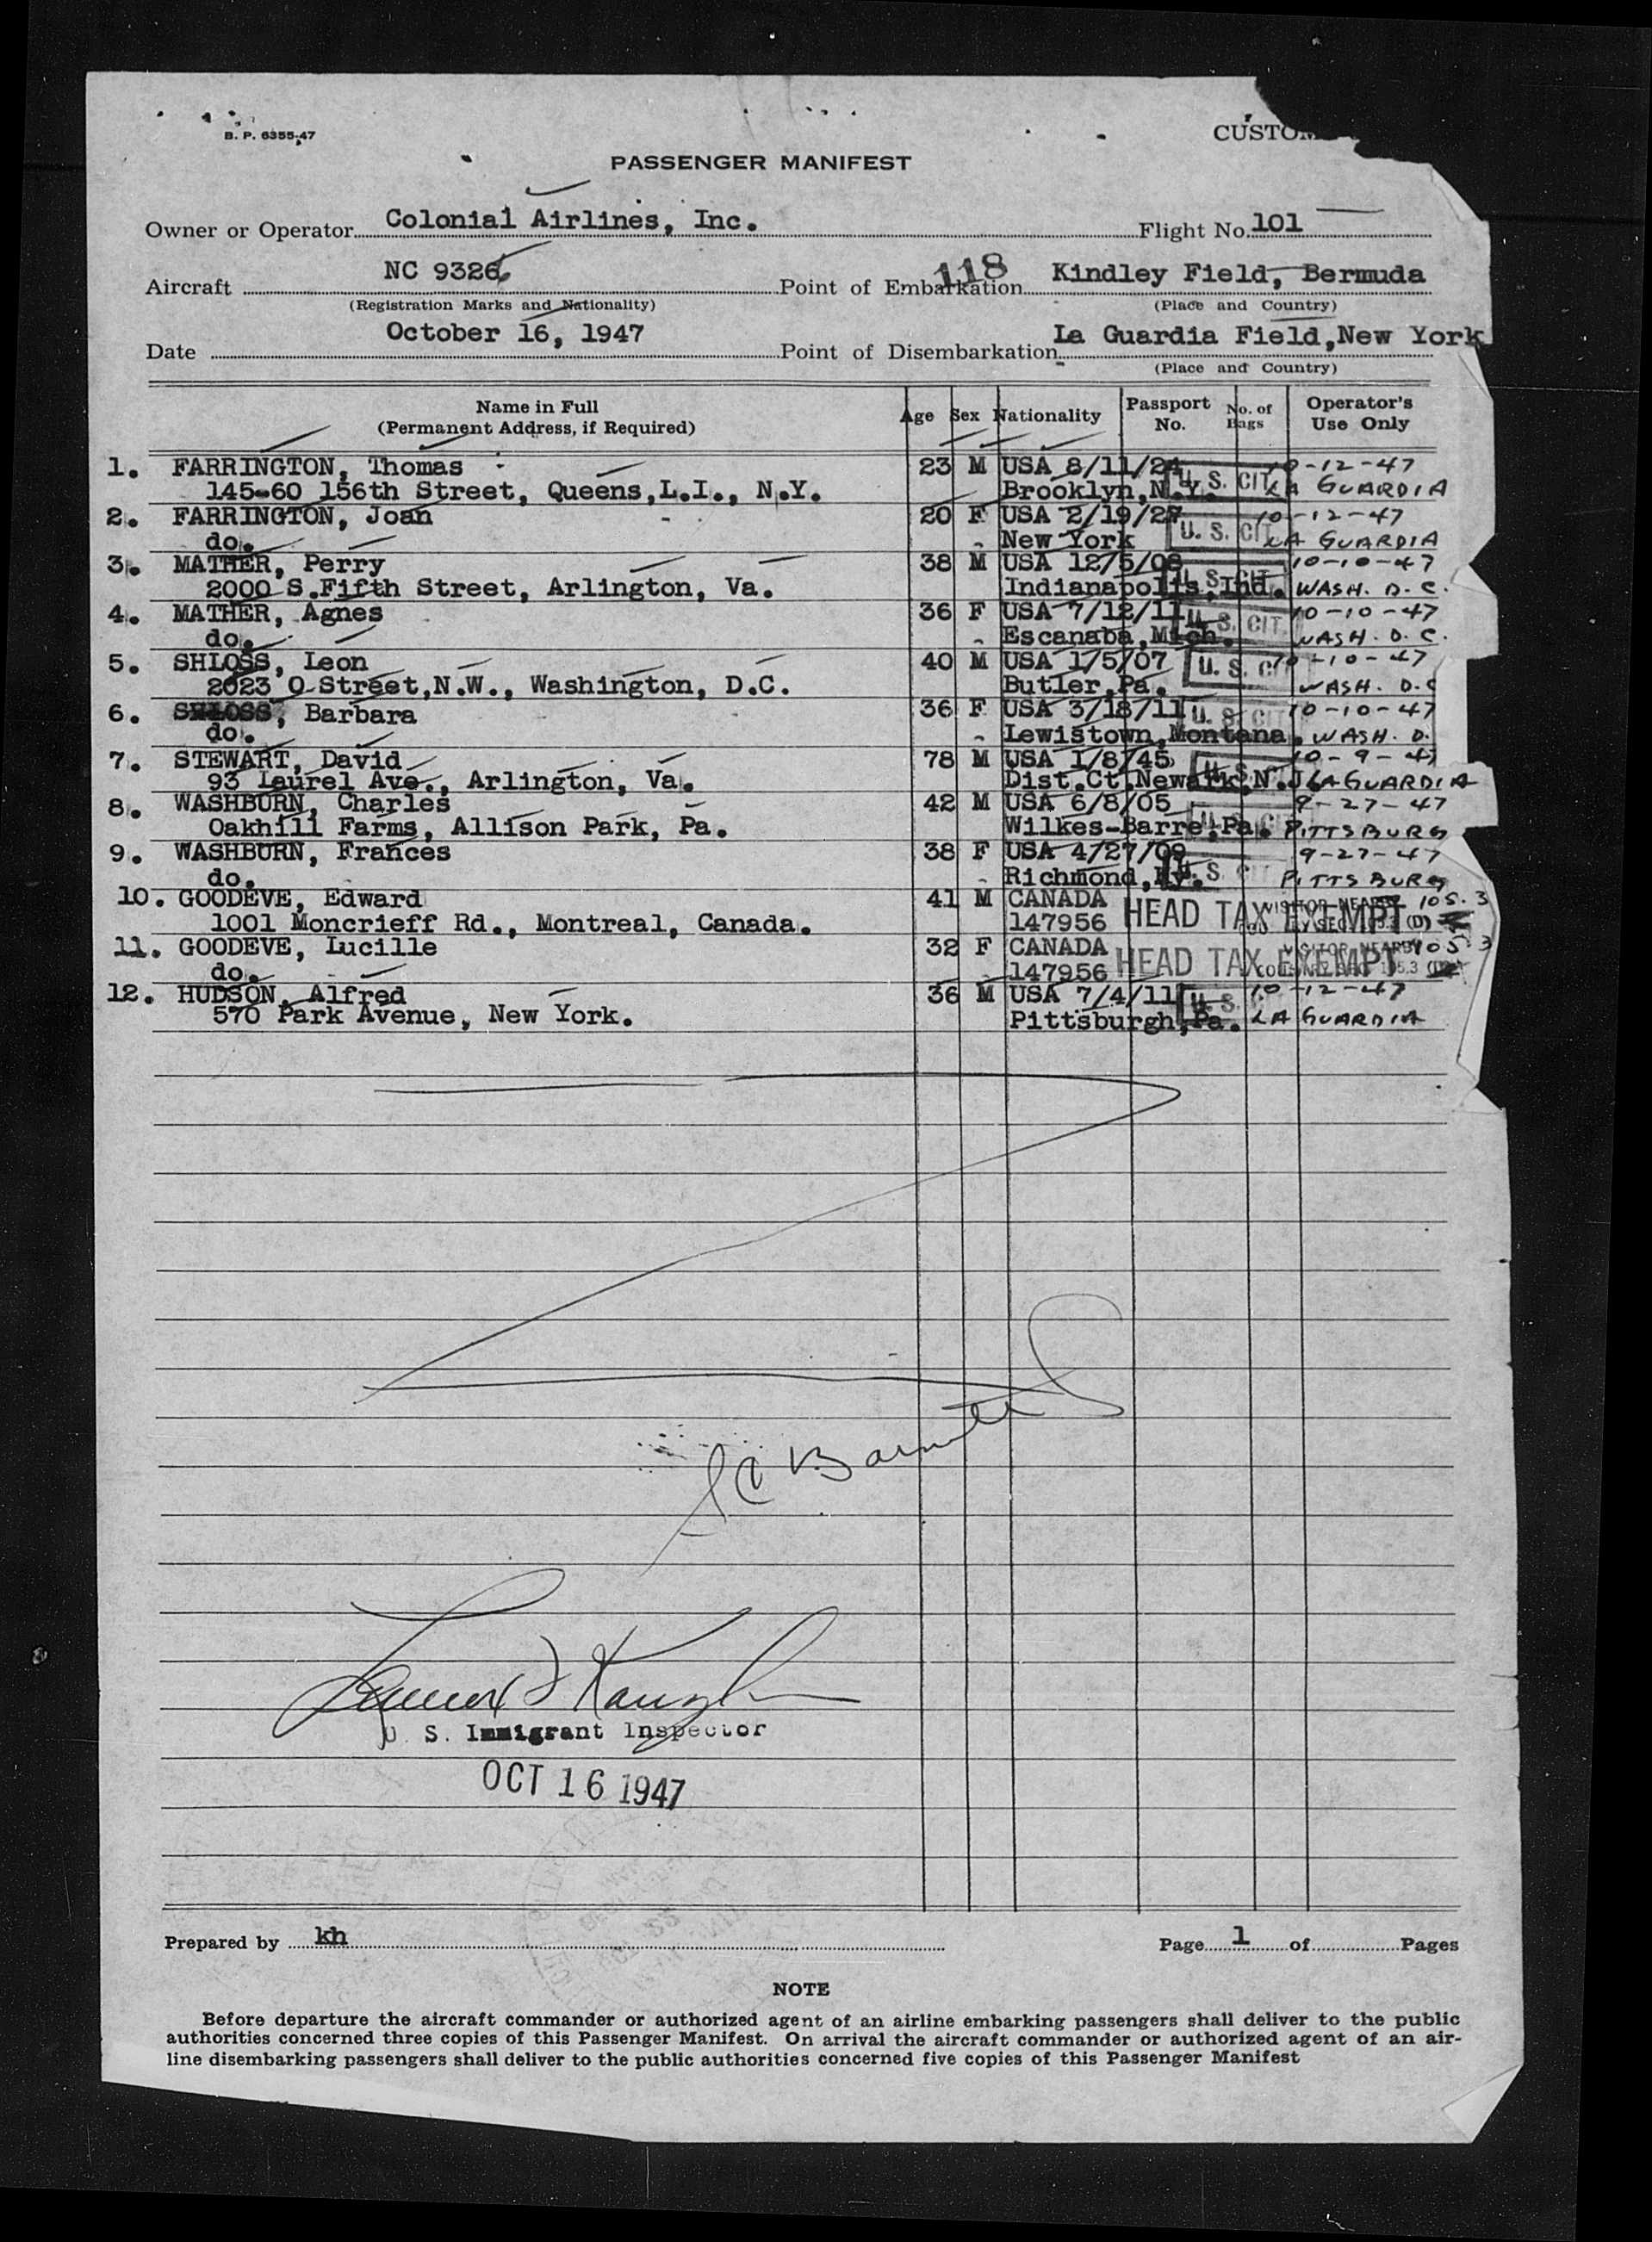 B. P. 6355-47
CUSTOM
PASSENGER MANIFEST
Owner or Operator Colonial Airlines, Inc. Flight No. 101
118
Aircraft NC 9326 Point of Embarkation Kindley Field, Bermuda
(Registration Marks and Nationality) (Place and Country)
Date October 16, 1947 Point of Disembarkation La Guardia Field,New York
(Place and Country)
Name in Full (Permanent Address, if Required) Age Sex Nationality Passport No. No. of Bags Operator's Use Only
1. FARRINGTON, Thomas 23 M USA 8/11/24 U. S. CIT. 10-12-47
145-60 156th Street, Queens,L.I., N.Y. Brooklyn,N.Y. LA GUARDIA
2. FARRINGTON, Joan 20 F USA 2/19/27 U. S. CIT. 10-12-47
do. New York LA GUARDIA
3. MATHER, Perry 38 M USA 12/5/08 10-10-47
2000 S.Fifth Street, Arlington, Va. Indianapolis,Ind. U. S. CIT. WASH. D.C.
4. MATHER, Agnes 36 F USA 7/12/11 U. S. CIT. 10-10-47
do. Escanaba,Mich. WASH. D.C.
5. SHLOSS, Leon 40 M USA 1/5/07 U. S. CIT 10-10-47
2023 O Street,N.W., Washington, D.C. Butler,Pa. WASH. D.C
6. SHLOSS, Barbara 36 F USA 3/18/11 U. S. CIT 10-10-47
do. Lewistown,Montana. WASH. D.
7. STEWART, David 78 M USA 1/8/45 10-9-47
93 Laurel Ave., Arlington, Va. Dist.Ct.Newark,N.J. U. S. LA GUARDIA
8. WASHBURN, Charles 42 M USA 6/8/05 9-27-47
Oakhill Farms, Allison Park, Pa. Wilkes-Barre,Pa. U. S. CIT PITTSBURG
9. WASHBURN, Frances 38 F USA 4/27/09 U. S. C 9-27-47
do. Richmond,Ky. PITTSBURG
10. GOODEVE, Edward 41 M CANADA HEAD TAX EXEMPT VISITOR NEARBY 105.3
1001 Moncrieff Rd., Montreal, Canada. 147956 (D)
11. GOODEVE, Lucille 32 F CANADA HEAD TAX EXEMPT VISITOR NEARBY 105.3
do. 147956
12. HUDSON, Alfred 36 M USA 7/4/11 U. S. 10-12-47
570 Park Avenue, New York. Pittsburgh,Pa. LA GUARDIA
U. S. Immigrant Inspector
OCT 16 1947
Prepared by kh Page 1 of Pages
NOTE
Before departure the aircraft commander or authorized agent of an airline embarking passengers shall deliver to the public
authorities concerned three copies of this Passenger Manifest. On arrival the aircraft commander or authorized agent of an air-
line disembarking passengers shall deliver to the public authorities concerned five copies of this Passenger Manifest